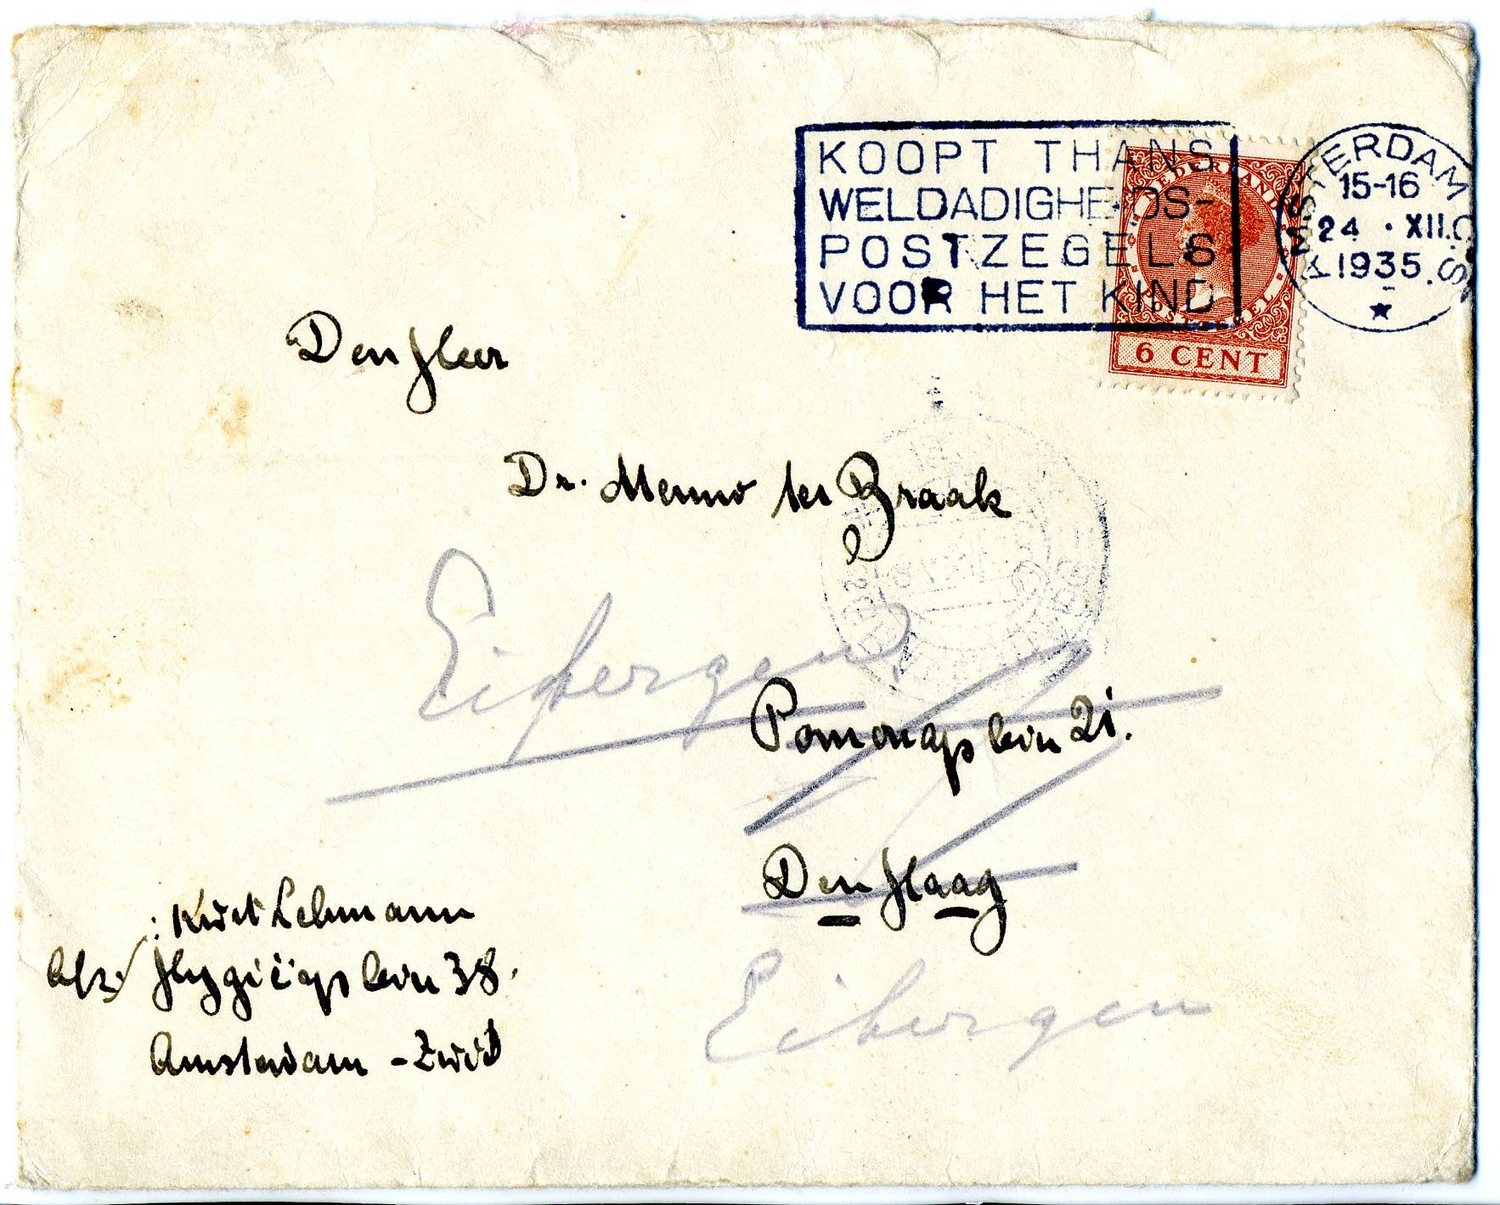 KOOPT THANS
WELDADIGHEIDS-
POSTZEGELS
VOOR HET KIND
NEDERLAND
POSTZEGEL
6 CENT
AMSTERDAM C.S.
15-16
24 · XII.
1935
Den Heer
Dr. Menno ter Braak
Eibergen
Pomonaplein 21.
Den Haag
Eibergen
: Kurt Lehmann
Afz. Hygiëaplein 38.
Amsterdam - Zuid